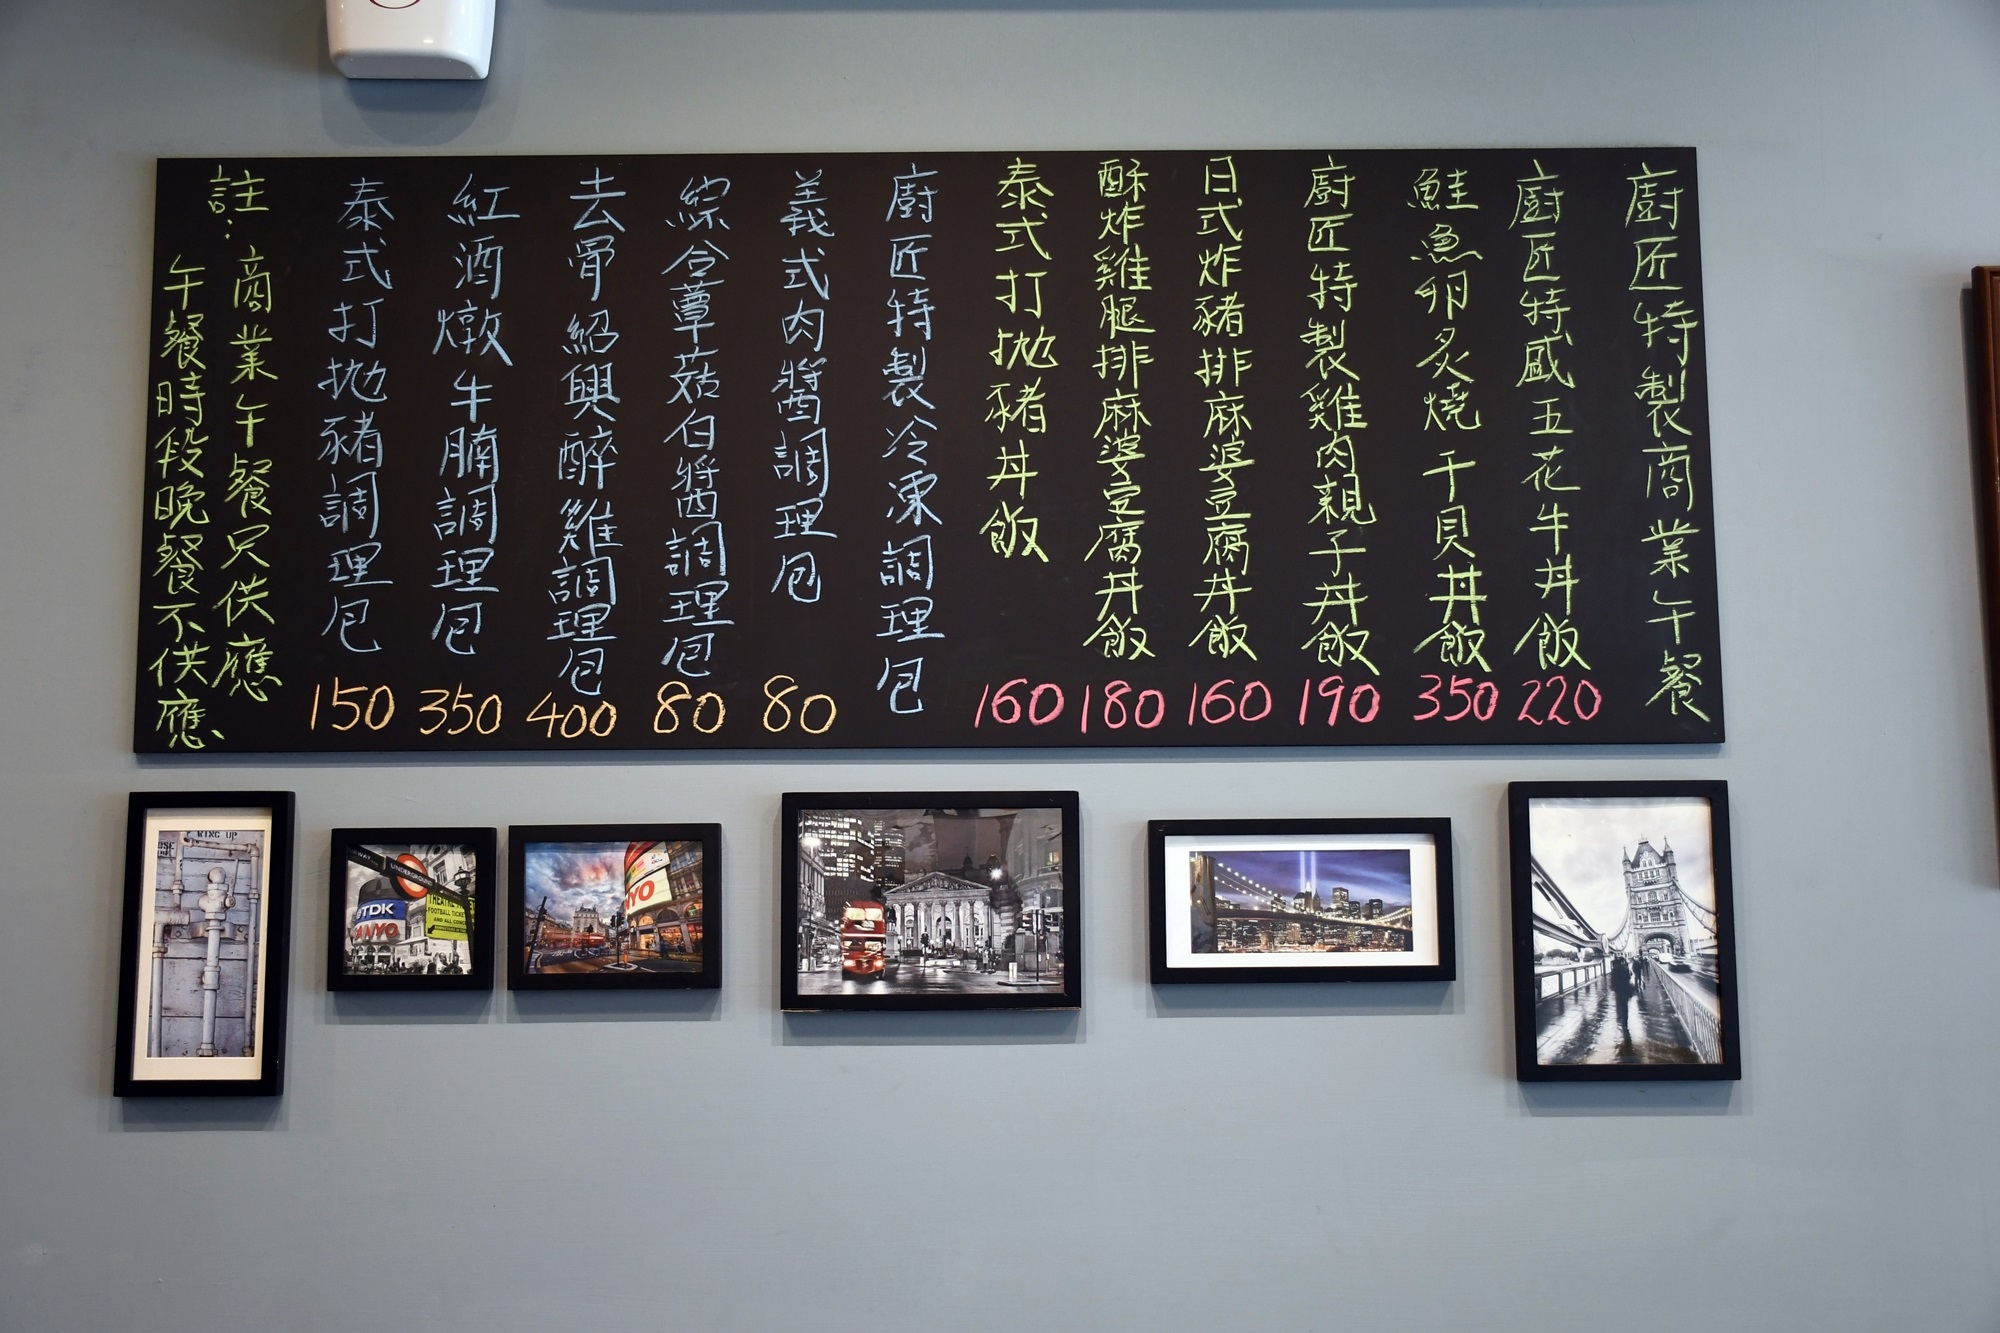 廚匠特製商業午餐
廚匠特盛五花牛丼飯 220
鮭魚卵炙燒干貝丼飯 350
廚匠特製雞肉親子丼飯 190
日式炸豬排麻婆豆腐丼飯 160
酥炸雞腿排麻婆豆腐丼飯 180
泰式打拋豬丼飯 160
廚匠特製冷凍調理包
義式肉醬調理包 80
綜合蕈菇白醬調理包 80
去骨紹興醉雞調理包 400
紅酒燉牛腩調理包 350
泰式打拋豬調理包 150
註：商業午餐只供應
午餐時段晚餐不供應
WING UP
UNDERGROUND
TDK
SANYO
FOOTBALL TICKE
YO